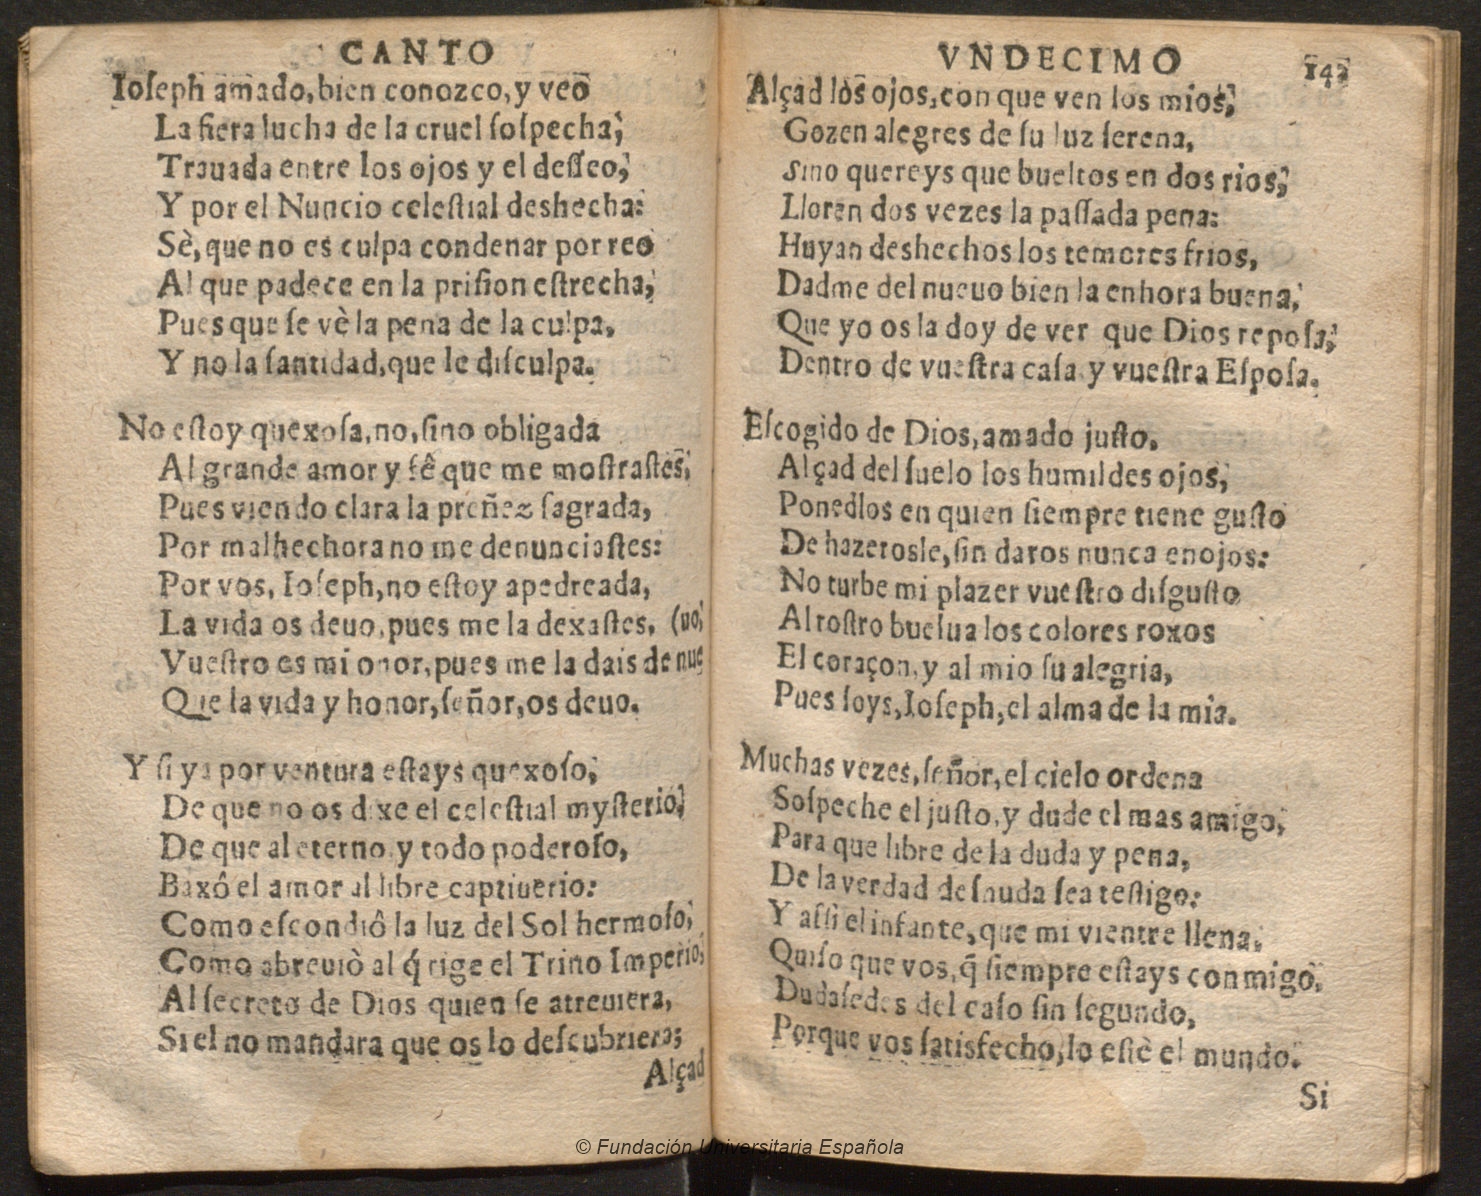 CANTO
Ioſeph amado, bien conozco, y veo
La fiera lucha de la cruel ſoſpecha,
Trauada entre los ojos y el deſſeo,
Y por el Nuncio celeſtial deshecha:
Sè, que no es culpa condenar por reo
Al que padece en la priſion eſtrecha,
Pues que ſe vè la pena de la culpa,
Y no la ſantidad, que le diſculpa.
No eſtoy quexoſa, no, ſino obligada
Al grande amor y fê que me moſtraſtes,
Pues viendo clara la preñez ſagrada,
Por malhechora no me denunciaſtes:
Por vos, Ioſeph, no eſtoy apedreada,
La vida os deuo, pues me la dexaſtes, (uo,
Vueſtro es mi onor, pues me la dais de nue
Que la vida y honor, ſeñor, os deuo.
Y ſi ya por ventura eſtays quexoſo,
De que no os dixe el celeſtial myſterio,
De que al eterno y todo poderoſo,
Baxô el amor al libre captiuerio:
Como eſcondiô la luz del Sol hermoſo,
Como abreuiò al q́ rige el Trino Imperio,
Al ſecreto de Dios quien ſe atreuiera,
Si el no mandara que os lo deſcubriera;
Alçad
VNDECIMO 142
Alçad los ojos, con que ven los mios,
Gozen alegres de ſu luz ſerena,
Sino quereys que bueltos en dos rios,
Lloren dos vezes la paſſada pena:
Huyan deshechos los temores frios,
Dadme del nueuo bien la enhora buena,
Que yo os la doy de ver que Dios repoſa,
Dentro de vueſtra caſa y vueſtra Eſpoſa.
Eſcogido de Dios, amado juſto,
Alçad del ſuelo los humildes ojos,
Ponedlos en quien ſiempre tiene guſto
De hazeroſle, ſin daros nunca enojos:
No turbe mi plazer vueſtro diſguſto
Al roſtro buelua los colores roxos
El coraçon, y al mio ſu alegria,
Pues ſoys, Ioſeph, el alma de la mia.
Muchas vezes, ſeñor, el cielo ordena
Soſpeche el juſto, y dude el mas amigo,
Para que libre de la duda y pena,
De la verdad deſnuda ſea teſtigo:
Y aſſi el infante, que mi vientre llena,
Quiſo que vos, q̃ ſiempre eſtays conmigo,
Dudaſedes del caſo ſin ſegundo,
Porque vos ſatisfecho, lo eſtè el mundo.
Si
© Fundación Universitaria Española